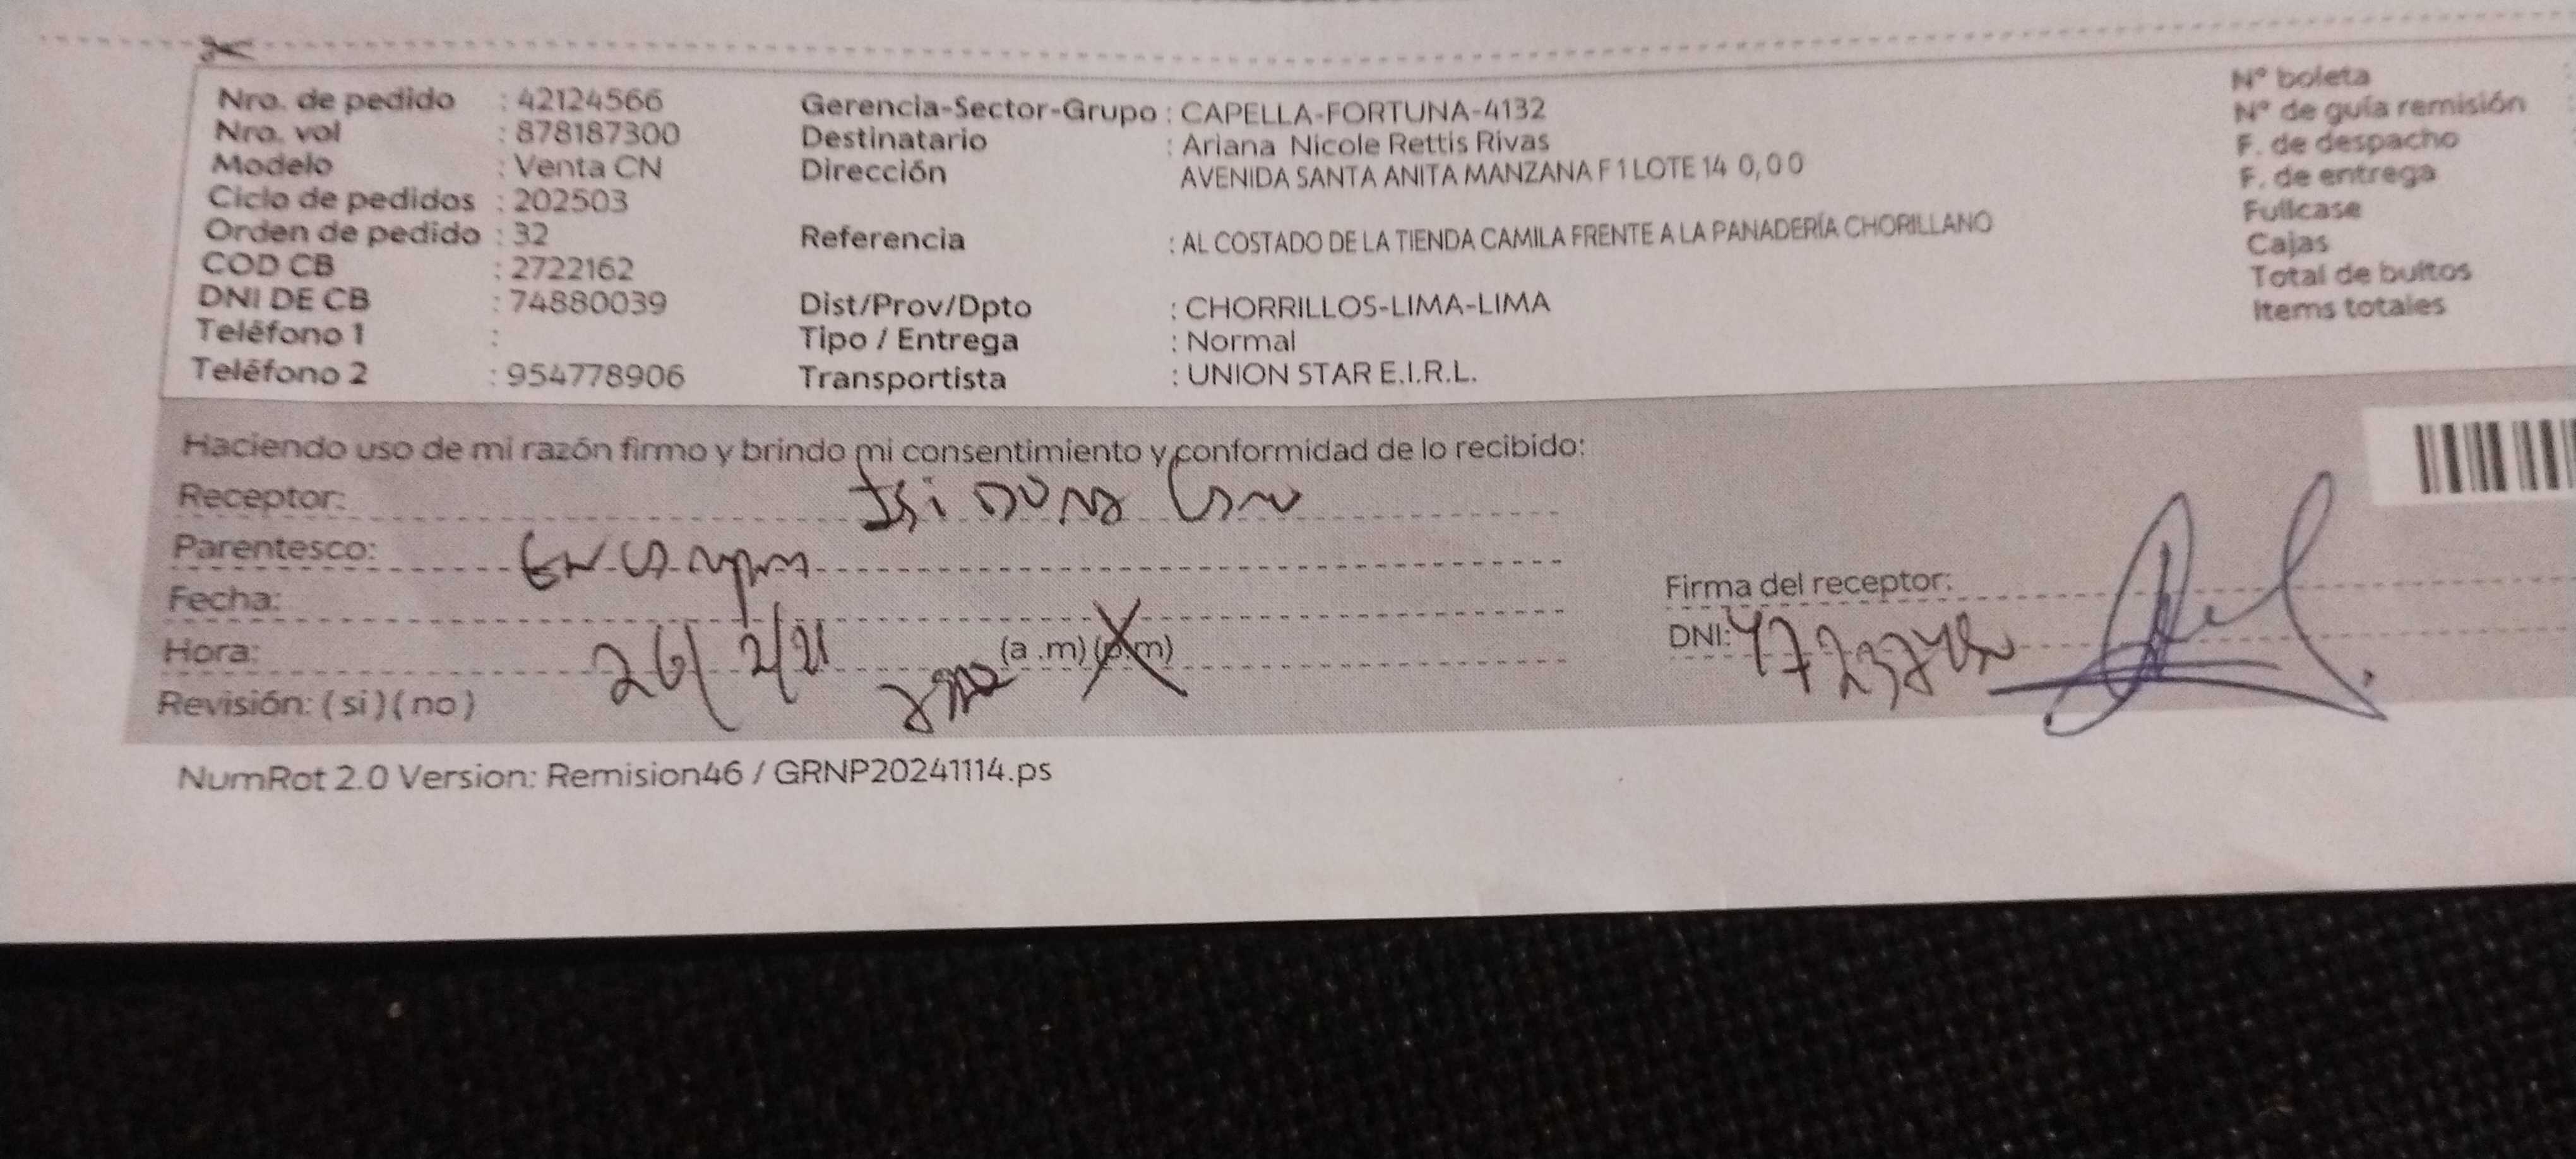 Nro. de pedido : 42124566
Nro. vol : 878187300
Modelo : Venta CN
Ciclo de pedidos : 202503
Orden de pedido : 32
COD CB : 2722162
DNI DE CB : 74880039
Teléfono 1 :
Teléfono 2 : 954778906
Gerencia-Sector-Grupo : CAPELLA-FORTUNA-4132
Destinatario : Ariana Nicole Rettis Rivas
Dirección AVENIDA SANTA ANITA MANZANA F 1 LOTE 14 0,00
Referencia : AL COSTADO DE LA TIENDA CAMILA FRENTE A LA PANADERÍA CHORILLANO
Dist/Prov/Dpto : CHORRILLOS-LIMA-LIMA
Tipo / Entrega : Normal
Transportista : UNION STAR E.I.R.L.
N° boleta
N° de guía remisión
F. de despacho
F. de entrega
Fullcase
Cajas
Total de bultos
Items totales
Haciendo uso de mi razón firmo y brindo mi consentimiento y conformidad de lo recibido:
Receptor:
Parentesco:
Fecha:
Hora: (a .m) (p.m)
Revisión: ( si ) ( no )
Firma del receptor:
DNI:
NumRot 2.0 Version: Remision46 / GRNP20241114.ps